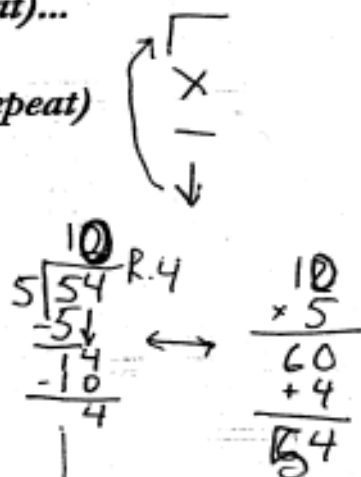 ut)...
epeat)
×
—
↓
10 R.4
5 54
-5↓
14
-10
4
10
× 5
60
+ 4
54